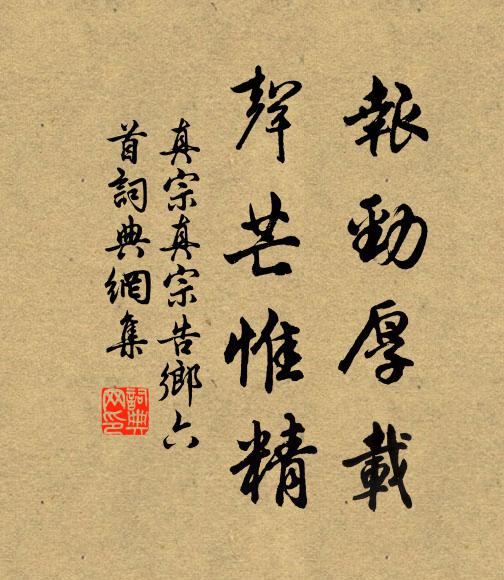 報勁厚載
聲芒惟精
真宗真宗告鄉六
首詞典網集
詞典
网印